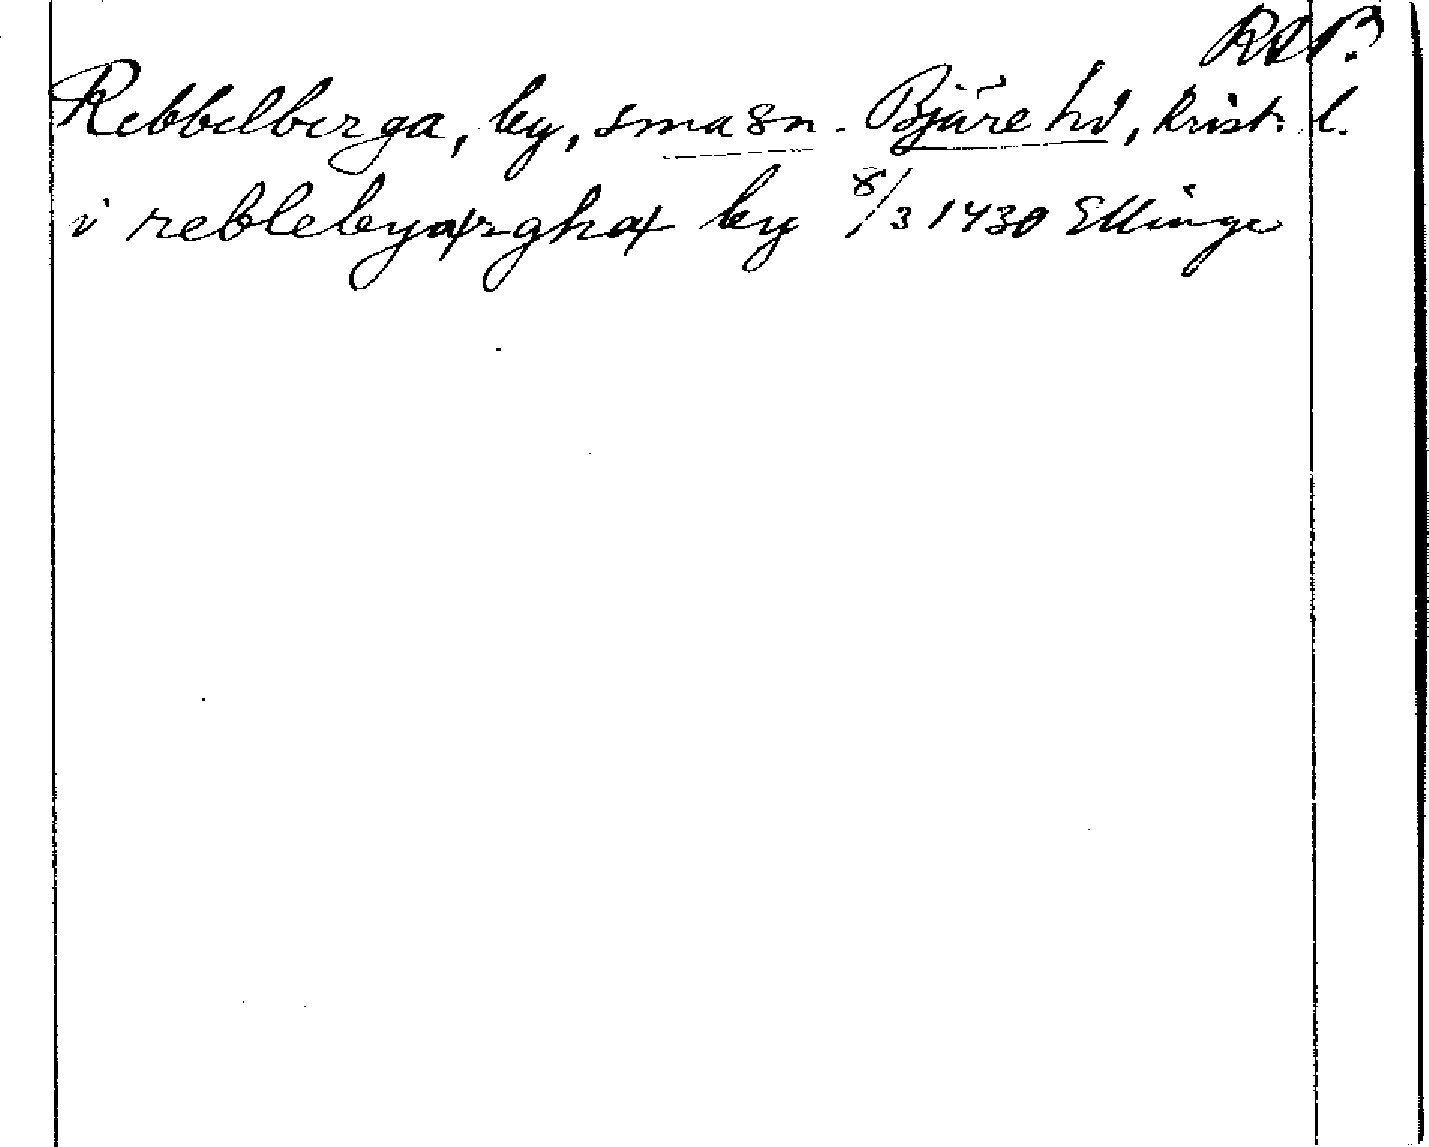 RAP.
Rebbelberga, by, sma sn. Bjäre hd, Krist. l.
i rebblebyærghæ by 8/3 1430 Ellinge